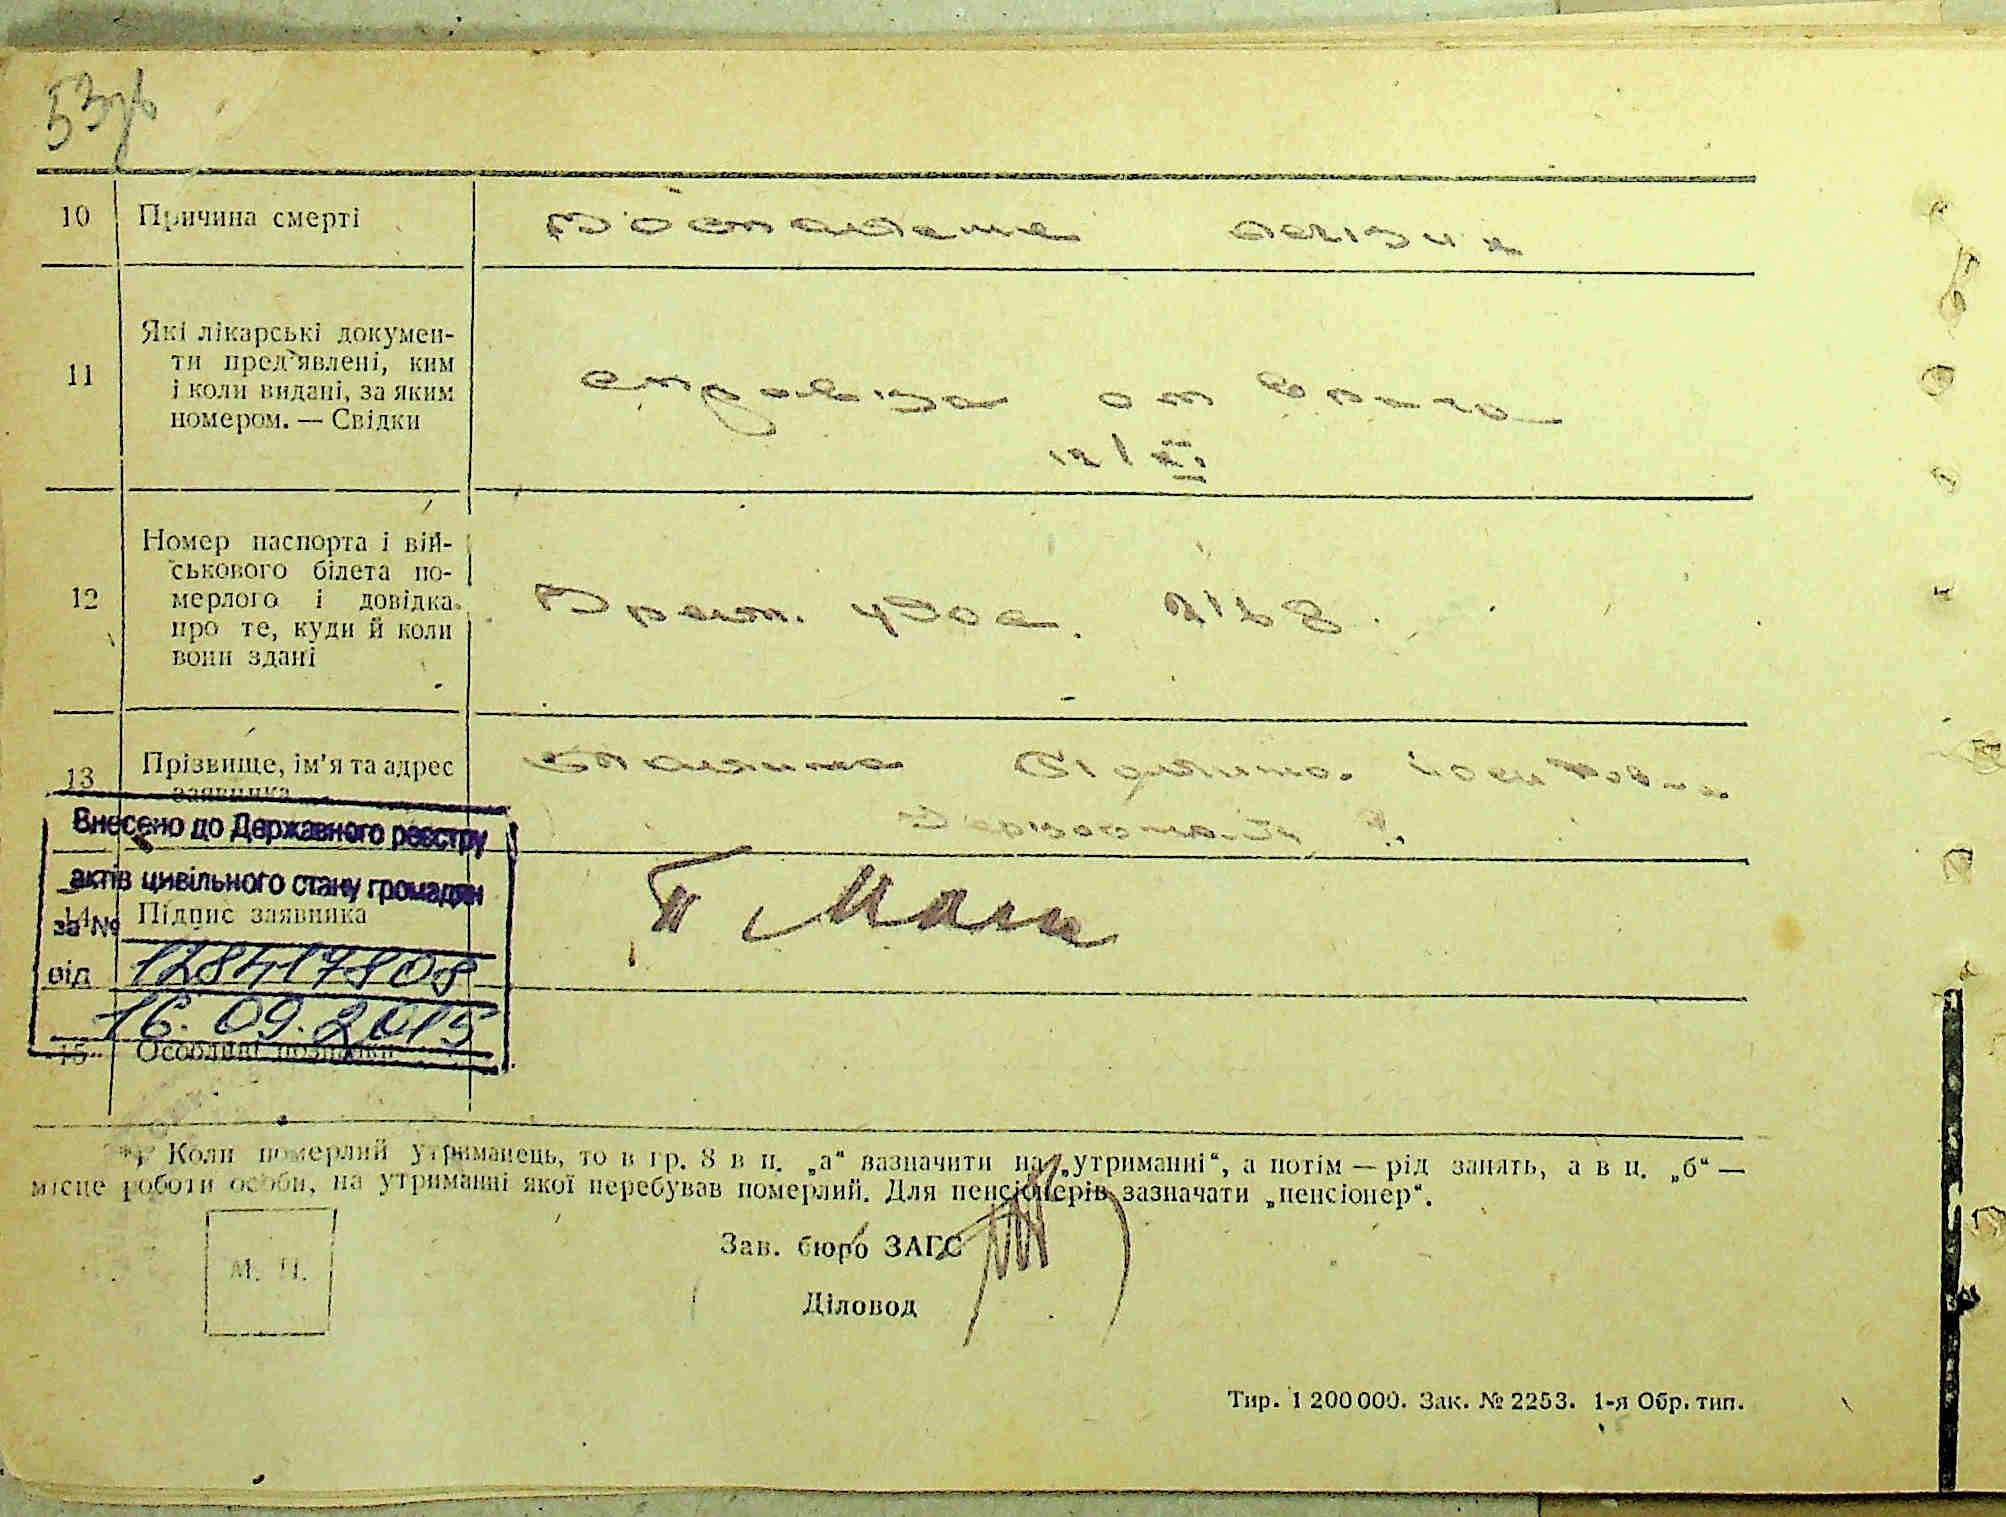 10 Причина смерти Воспаление легких
11 Які лікарські докумен-
ти пред'явлені, ким
і коли видані, за яким
номером. — Свідки
справка от врача
12/XII
12 Номер паспорта і вій-
ськового білета по-
мерлого і довідка
про те, куди й коли
вони здані
Врем. удос. 2128
13 Прізвище, ім'я та адрес
заявника
Внесено до Державного реєстру
актів цивільного стану громадян
за № 128417808
від 16.09.2015
14 Підпис заявника
15 Особливі познаки
Коли померлий утриманець, то в гр. 8 в п. „а“ вазначити на „утриманні“, а потім — рід занять, а в п. „б“ —
місце роботи особи, на утриманні якої перебував померлий. Для пенсіонерів зазначати „пенсіонер“.
М. П.
Зав. бюро ЗАГС
Діловод
Тир. 1 200 000. Зак. № 2253. 1-я Обр. тип.